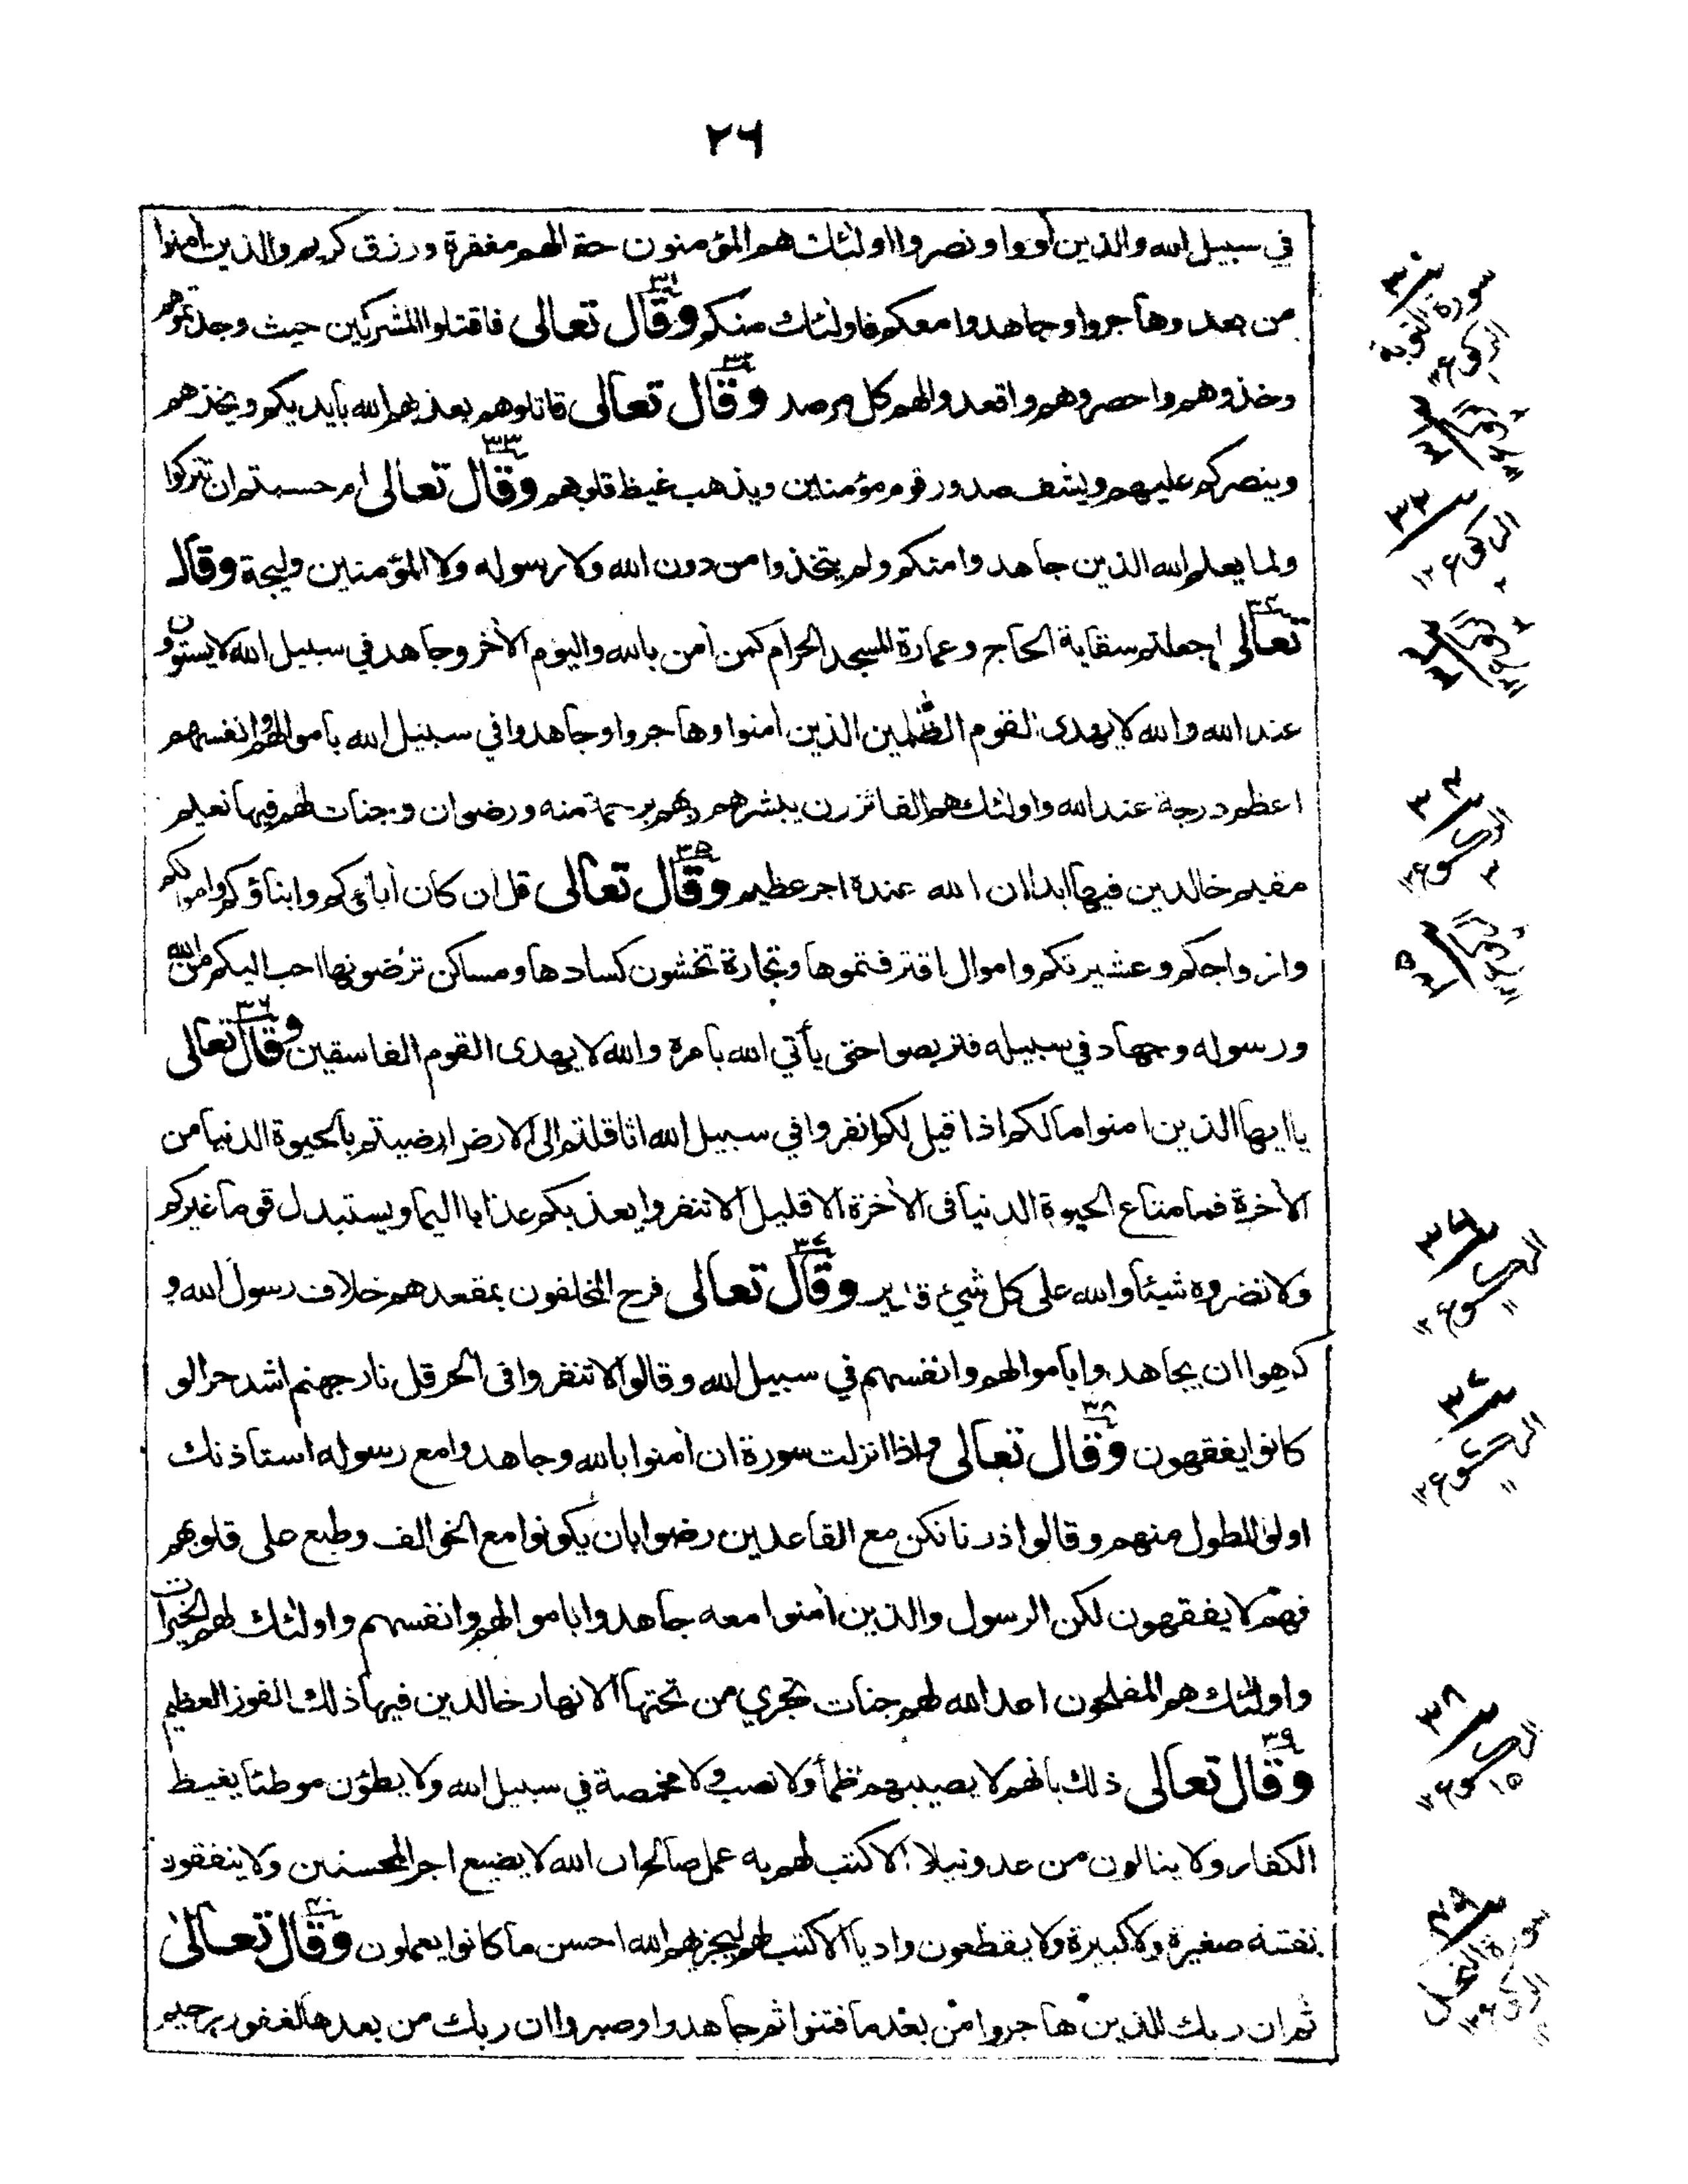 ٢٦
في سبيل الله والذين آووا ونصروا اولئك هم المؤمنون حقا لهم مغفرة ورزق كريم والذين آمنوا
من بعد وهاجروا وجاهدوا معكم فاولئك منكم وقال تعالى فاقتلوا المشركين حيث وجدتموهم
وخذوهم واحصروهم واقعدوا لهم كل مرصد وقال تعالى قاتلوهم يعذبهم الله بأيديكم ويخزهم
وينصركم عليهم ويشف صدور قوم مؤمنين ويذهب غيظ قلوبهم وقال تعالى ام حسبتم ان تتركوا
ولما يعلم الله الذين جاهدوا منكم ولم يتخذوا من دون الله ولا رسوله ولا المؤمنين وليجة وقال
تعالى اجعلتم سقاية الحاج وعمارة المسجد الحرام كمن آمن بالله واليوم الآخر وجاهد في سبيل الله لا يستوون
عند الله والله لا يهدى القوم الظلمين الذين آمنوا وهاجروا وجاهدوا في سبيل الله باموالهم وانفسهم
اعظم درجة عند الله واولئك هم الفائزون يبشرهم ربهم برحمة منه ورضوان وجنات لهم فيها نعيم
مقيم خالدين فيها ابدا ان الله عنده اجر عظيم وقال تعالى قل ان كان آباؤكم وابناؤكم واموالكم
وازواجكم وعشيرتكم واموال اقترفتموها وتجارة تخشون كسادها ومساكن ترضونها احب اليكم من الله
ورسوله وجهاد في سبيله فتربصوا حتى يأتي الله بامره والله لا يهدى القوم الفاسقين وقال تعالى
يا ايها الذين امنوا مالكم اذا قيل لكم انفروا في سبيل الله اثاقلتم الى الارض ارضيتم بالحيوة الدنيا من
الآخرة فما متاع الحيوة الدنيا فى الآخرة الا قليل الا تنفروا يعذبكم عذابا اليما ويستبدل قوما غيركم
ولا تضروه شيئا والله على كل شئ قدير وقال تعالى فرح المخلفون بمقعدهم خلاف رسول الله و
كرهوا ان يجاهدوا باموالهم وانفسهم في سبيل الله وقالوا لا تنفروا فى الحر قل نار جهنم اشد حرا لو
كانوا يفقهون وقال تعالى واذا انزلت سورة ان آمنوا بالله وجاهدوا مع رسوله استاذنك
اولو الطول منهم وقالوا ذرنا نكن مع القاعدين رضوا بان يكونوا مع الخوالف وطبع على قلوبهم
فهم لا يفقهون لكن الرسول والذين آمنوا معه جاهدوا باموالهم وانفسهم واولئك لهم الخيرات
واولئك هم المفلحون اعد الله لهم جنات تجري من تحتها الانهار خالدين فيها ذلك الفوز العظيم
وقال تعالى ذلك بانهم لا يصيبهم ظمأ ولا نصب ولا مخمصة في سبيل الله ولا يطؤن موطئا يغيظ
الكفار ولا ينالون من عدو نيلا الا كتب لهم به عمل صالح ان الله لا يضيع اجر المحسنين ولا ينفقون
نفقة صغيرة ولا كبيرة ولا يقطعون واديا الا كتب لهم ليجزيهم الله احسن ما كانوا يعملون وقال تعالى
ثم ان ربك للذين هاجروا من بعد ما فتنوا ثم جاهدوا وصبروا ان ربك من بعدها لغفور رحيم
سورة التوبة
سورة النحل